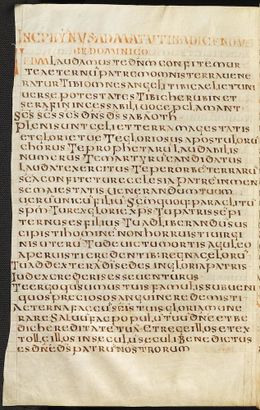 INC P HYNUS AD MATUTI B A DICENDUM
DIE DOMINICO
TE DM LAUDAMUS TE DNM CONFITEMUR
TE AETERNU PATREM OMNIS TERRA UENE
RATUR TIBI OMNES ANGELI TIBI CAELI ET UNI
UERSE POTESTATES TIBI CHERUBIN ET
SERAFIN INCESSABILI UOCE PCLAMANT
SCS SCS SCS DNS DS SABAOTH
PLENI SUNT CELI ET TERRA MAGESTATIS
ET GLORIE TUE TE GLORIOSUS APOSTULORU
CHORUS TE PROPHETARU LAUDABILIS
NUMERUS TE MARTYRU CANDIDATUS
LAUDAT EXERCITUS TE PER ORBE TERRARU
SCA CONFITETUR ECLESIA PATRE INMEN
SE MAIESTATIS UENERANDUM TUUM
UERU UNICU FILIU SCM QUOQ PARACLITU
SPM TU REX GLORIE XPS TU PATRIS SEPI
TERNUS ES FILIUS TU AD LIBERANDU SUS
CIPISTI HOMINE NON HORRUISTI UIRGI
NIS UTERU TU DEUICTU MORTIS ACULEO
APERUISTI CREDENTIB REGNA CELORU
TU AD DEXTERA DI SEDES IN GLORIA PATRIS
IUDEX CREDERIS ESSE UENTURUS
TE ERGO QUSUMUS TUIS FAMULIS SUBUENI
QUOS PRECIOSO SANGUINE REDEMISTI
AETERNA FAC CU SCIS TUIS GLORIA MUNE
RARE SALUU FAC POPULU TUU DNE ET BE
DIC HEREDITATE TUA ET REGE ILLOS ET EX
TOLLE ILLOS IN SECULU SECULI BENEDICTUS
ES DNE DS PATRU NOSTRORUM